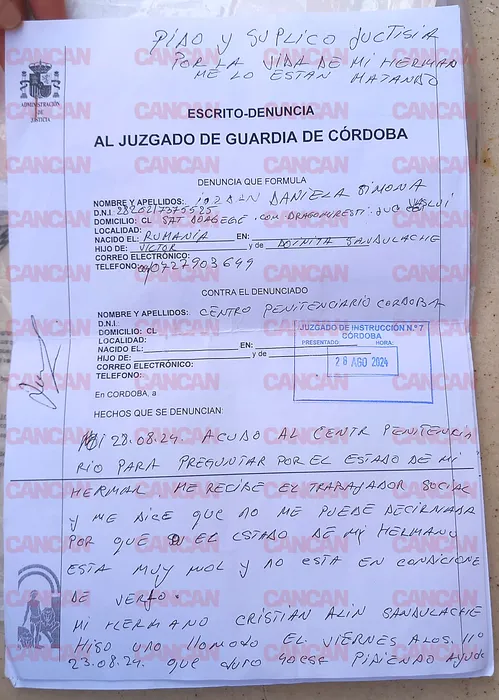 PIDO Y SUPLICO JUCTISIA
POR LA VIDA DE MI HERMAN
ME LO ESTAN MATANDO
ADMINISTRACIÓN
DE
JUSTICIA
ESCRITO-DENUNCIA
AL JUZGADO DE GUARDIA DE CÓRDOBA
DENUNCIA QUE FORMULA
NOMBRE Y APELLIDOS: DANIELA SIMONA
D.N.I.
DOMICILIO: CL SAT COM DRAGOMIRESTI JUD VASLUI
LOCALIDAD:
NACIDO EL: RUMANIA EN:
HIJO DE: VICTOR y de DOINITA SANDULACHE
CORREO ELECTRÓNICO:
TELEFONO: 0727903699
CONTRA EL DENUNCIADO
NOMBRE Y APELLIDOS: CENTRO PENITENCIARIO CORDOBA
D.N.I.:
DOMICILIO: CL
LOCALIDAD:
NACIDO EL: EN:
HIJO DE: y de
CORREO ELECTRÓNICO:
TELEFONO:
JUZGADO DE INSTRUCCIÓN N.º 7
CÓRDOBA
PRESENTADO: HORA:
28 AGO 2024
En CORDOBA, a
HECHOS QUE SE DENUNCIAN:
28.08.24. ACUDO AL CENTR PENITENCIA
RIO PARA PREGUNTAR POR EL ESTADO DE MI
HERMAN. ME RECIBE EL TRABAJADOR SOCIAL
Y ME DICE QUE NO ME PUEDE DECIR NADA
POR QUE EL ESTADO DE MI HERMANO
ESTA MUY MOL Y NO ESTA EN CONDICIONE
DE VERLO.
MI HERMANO CRISTIAN ALIN SANDULACHE
HISO UNA LLAMADA EL VIERNES A LOS 11
23.08.24. QUE DURO PIDIENDO AYUDA
CANCAN